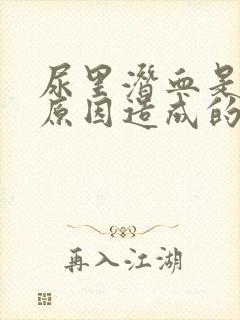 尿里潜血是
原因造成的
再入江湖